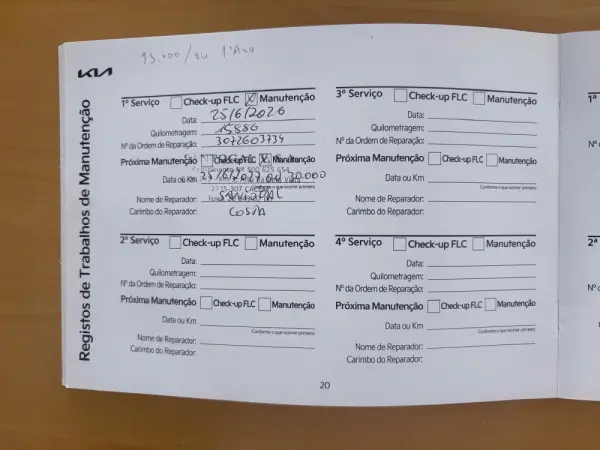 15.000 / ou 1º Ano
KIA
Registos de Trabalhos de Manutenção
1º Serviço Check-up FLC X Manutenção
Data: 25/6/2026
Quilometragem: 15886
Nº da Ordem de Reparação: 3072603734
Próxima Manutenção Check-up FLC X Manutenção
Data ou Km 25/6/2027 ou 30.000
Conforme o que ocorrer primeiro
Nome de Reparador:
Carimbo do Reparador: COSTA
2º Serviço Check-up FLC Manutenção
Data:
Quilometragem:
Nº da Ordem de Reparação:
Próxima Manutenção Check-up FLC Manutenção
Data ou Km
Conforme o que ocorrer primeiro
Nome de Reparador:
Carimbo do Reparador:
3º Serviço Check-up FLC Manutenção
Data:
Quilometragem:
Nº da Ordem de Reparação:
Próxima Manutenção Check-up FLC Manutenção
Data ou Km
Conforme o que ocorrer primeiro
Nome de Reparador:
Carimbo do Reparador:
4º Serviço Check-up FLC Manutenção
Data:
Quilometragem:
Nº da Ordem de Reparação:
Próxima Manutenção Check-up FLC Manutenção
Data ou Km
Conforme o que ocorrer primeiro
Nome de Reparador:
Carimbo do Reparador:
20
1ª
Nº
2ª
Nº